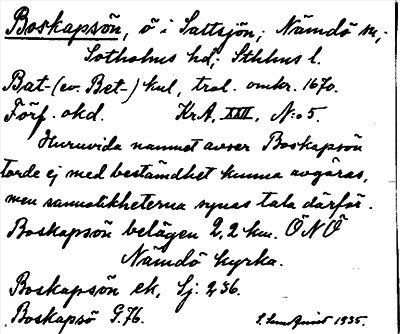 Boskapsön, ö i Saltsjön; Nämdö sn,
Sotholms hd; Sthlms l.
Bat- (ev. Bet-) kul, trol. omkr. 1670.
Förf. okd. KrA, XXVI, N:o 5.
Huruvida namnet avser Boskapsön
torde ej med bestämdhet kunna avgöras,
men sannolikheterna synas tala därför.
Boskapsön belägen 2,2 km. ÖNÖ
Nämdö kyrka.
Boskapsön ek. Sj: 236.
Boskapsö G. 76. S. Lundquist 1935.